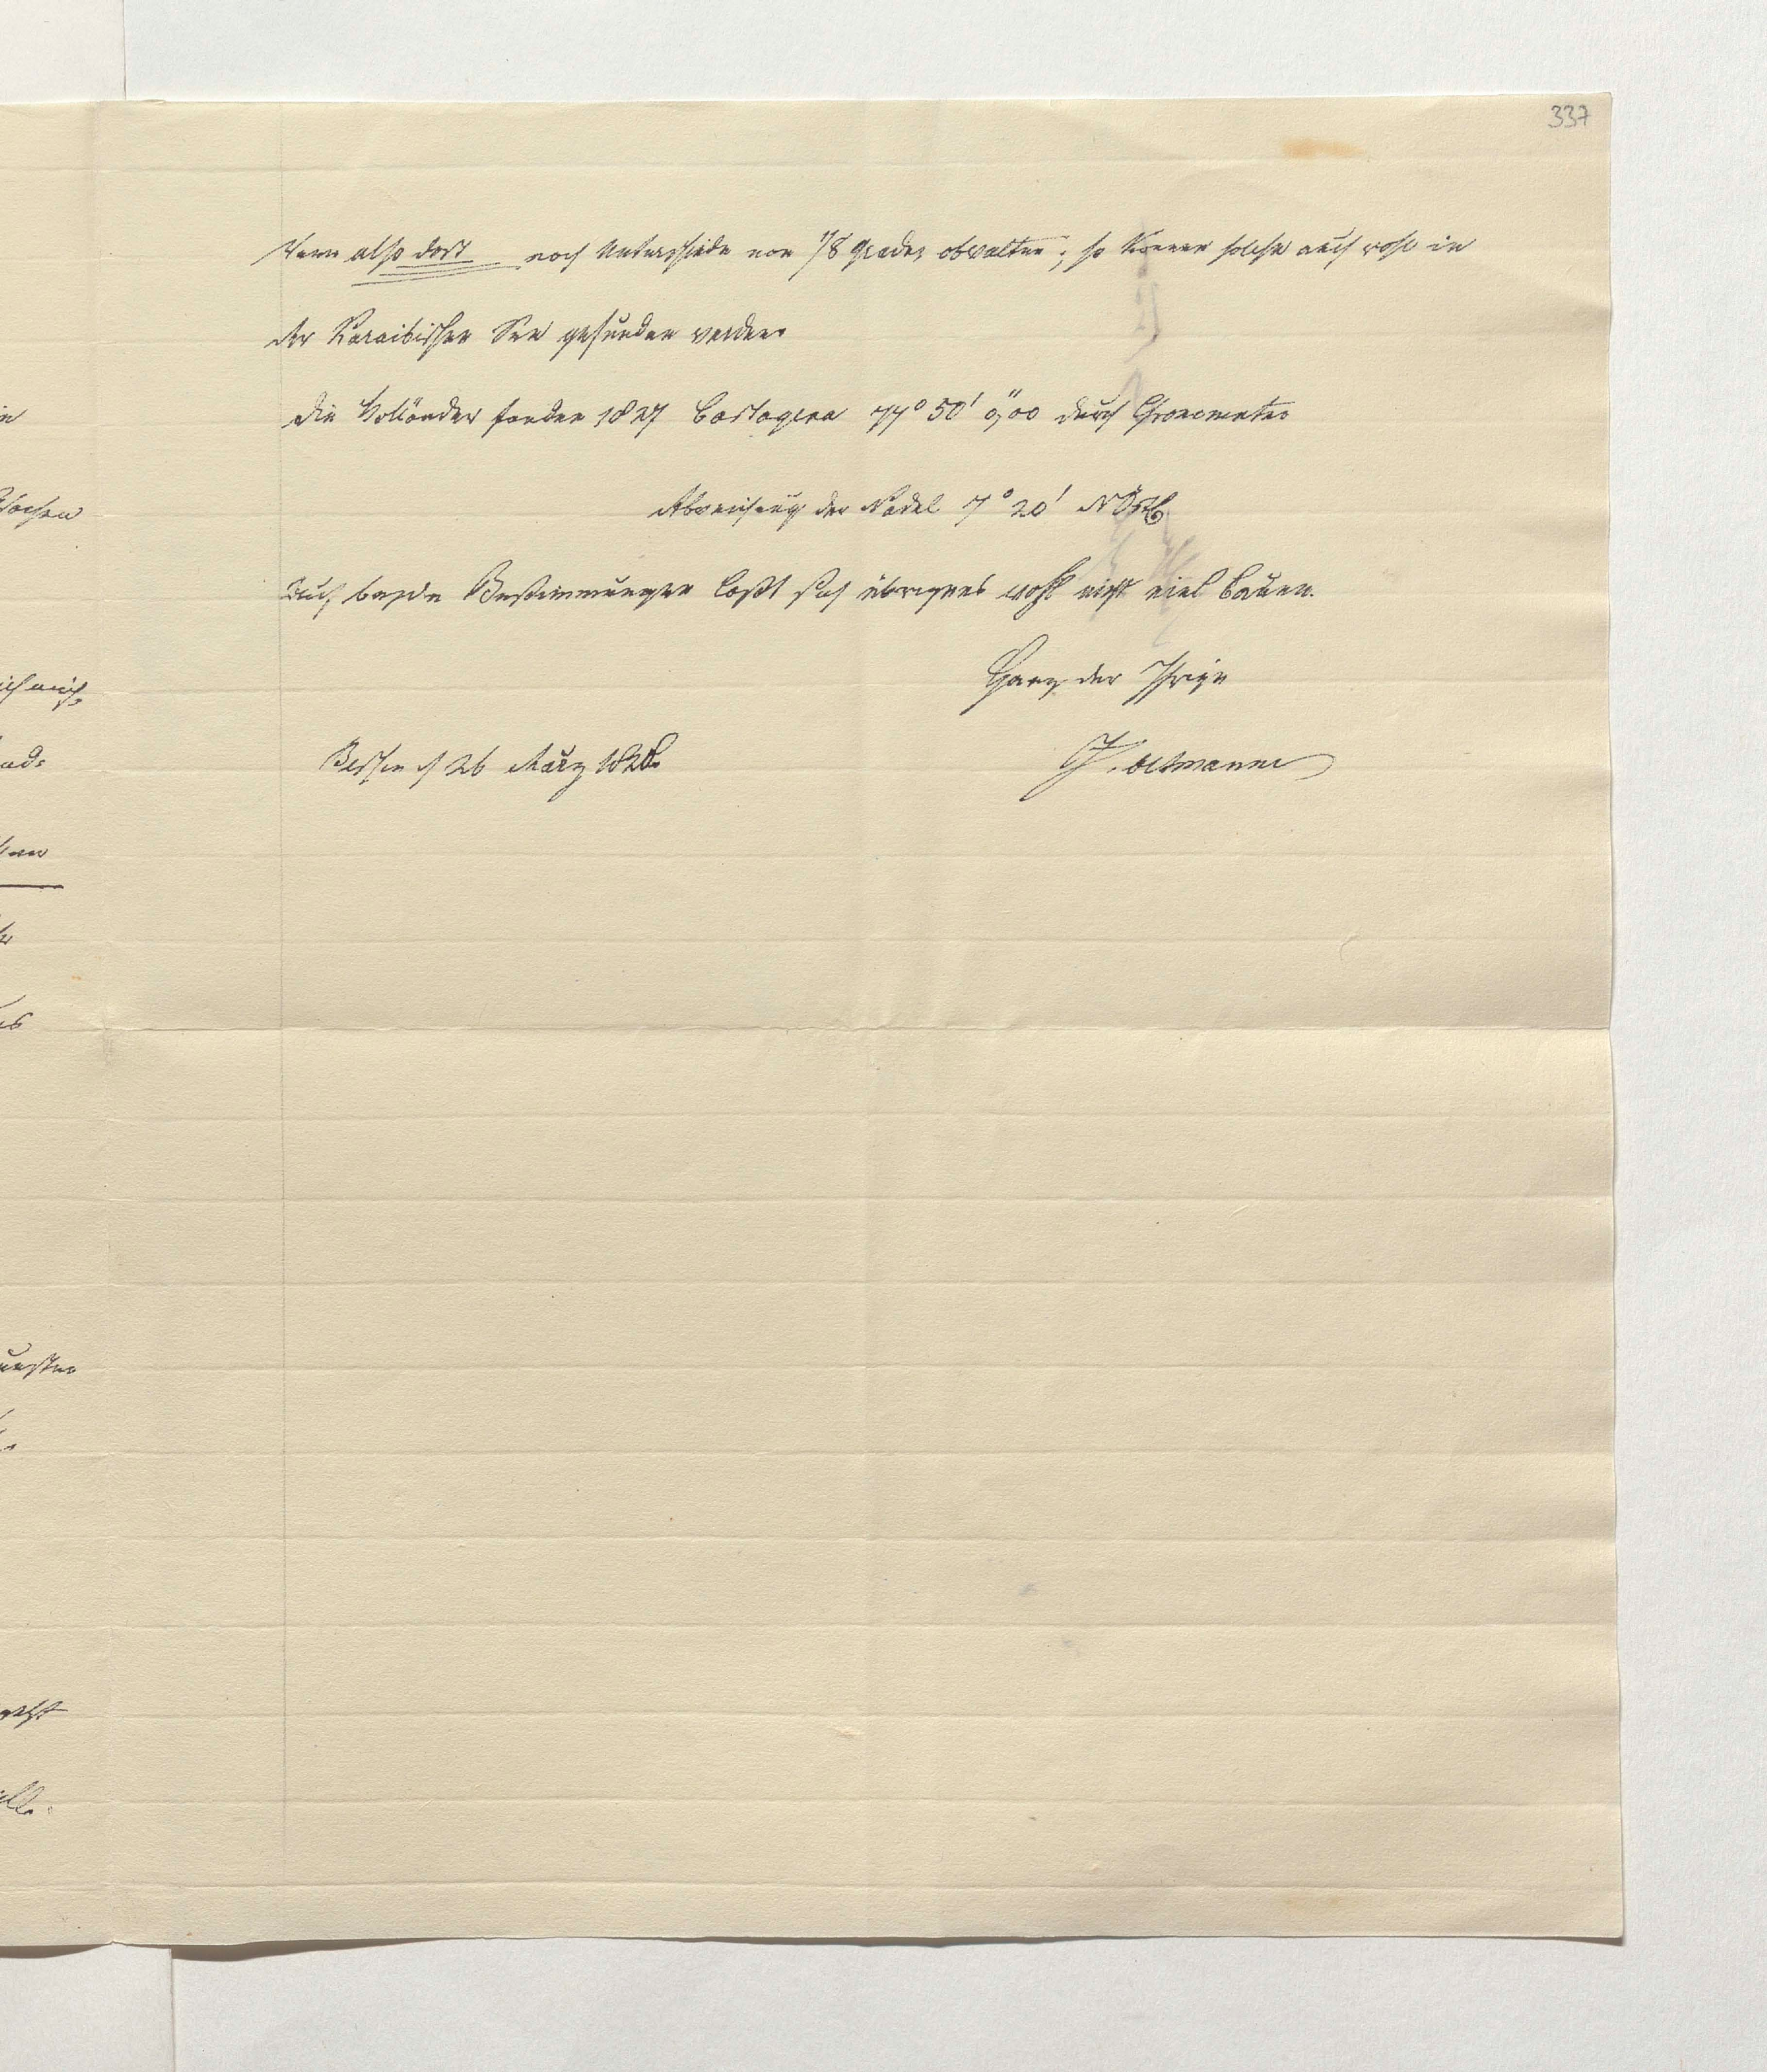 337
Wenn also dort noch Unterschiede von 1/8 Grades obwalten; so können solche auch wohl in
der Karaibischen See gefunden werden.
Die Holländer fanden 1827 Cartagena 77° 50' 0",00 durch Chronometer
Abweichung der Nadel 7° 20' NOstl.
Auf beyde Bestimmungen läßt sich übrigens wohl nicht viel bauen.
Ganz der Ihrige
Berlin d 26 März 1828. J. Oltmanns